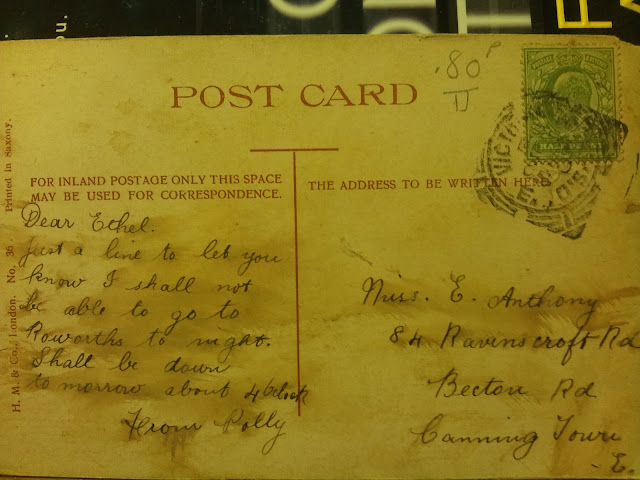 .80 P
POST CARD
HALF PENNY
FOR INLAND POSTAGE ONLY THIS SPACE
MAY BE USED FOR CORRESPONDENCE.
THE ADDRESS TO BE WRITTEN HERE
Dear Ethel.
Just a line to let you
know I shall not
be able to go to
Roworths to night.
Shall be down
to morrow about 4 o'clock
From Polly
Miss. E. Anthony
84 Ravinscroft Rd
Becton Rd
Canning Town
- E.
H. M. & Co., London. No. 36 Printed in Saxony.